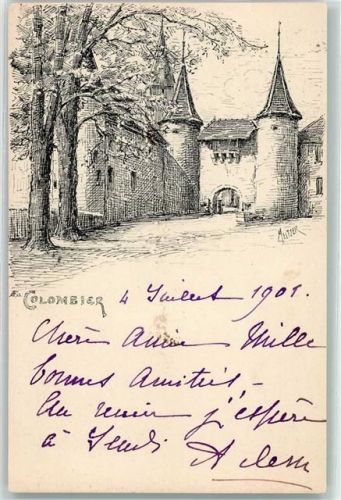 COLOMBIER
4 Juillet 1901.
Chère Amie Mille
bonnes Amitiés -
Au revoir j'espère
à Jeudi